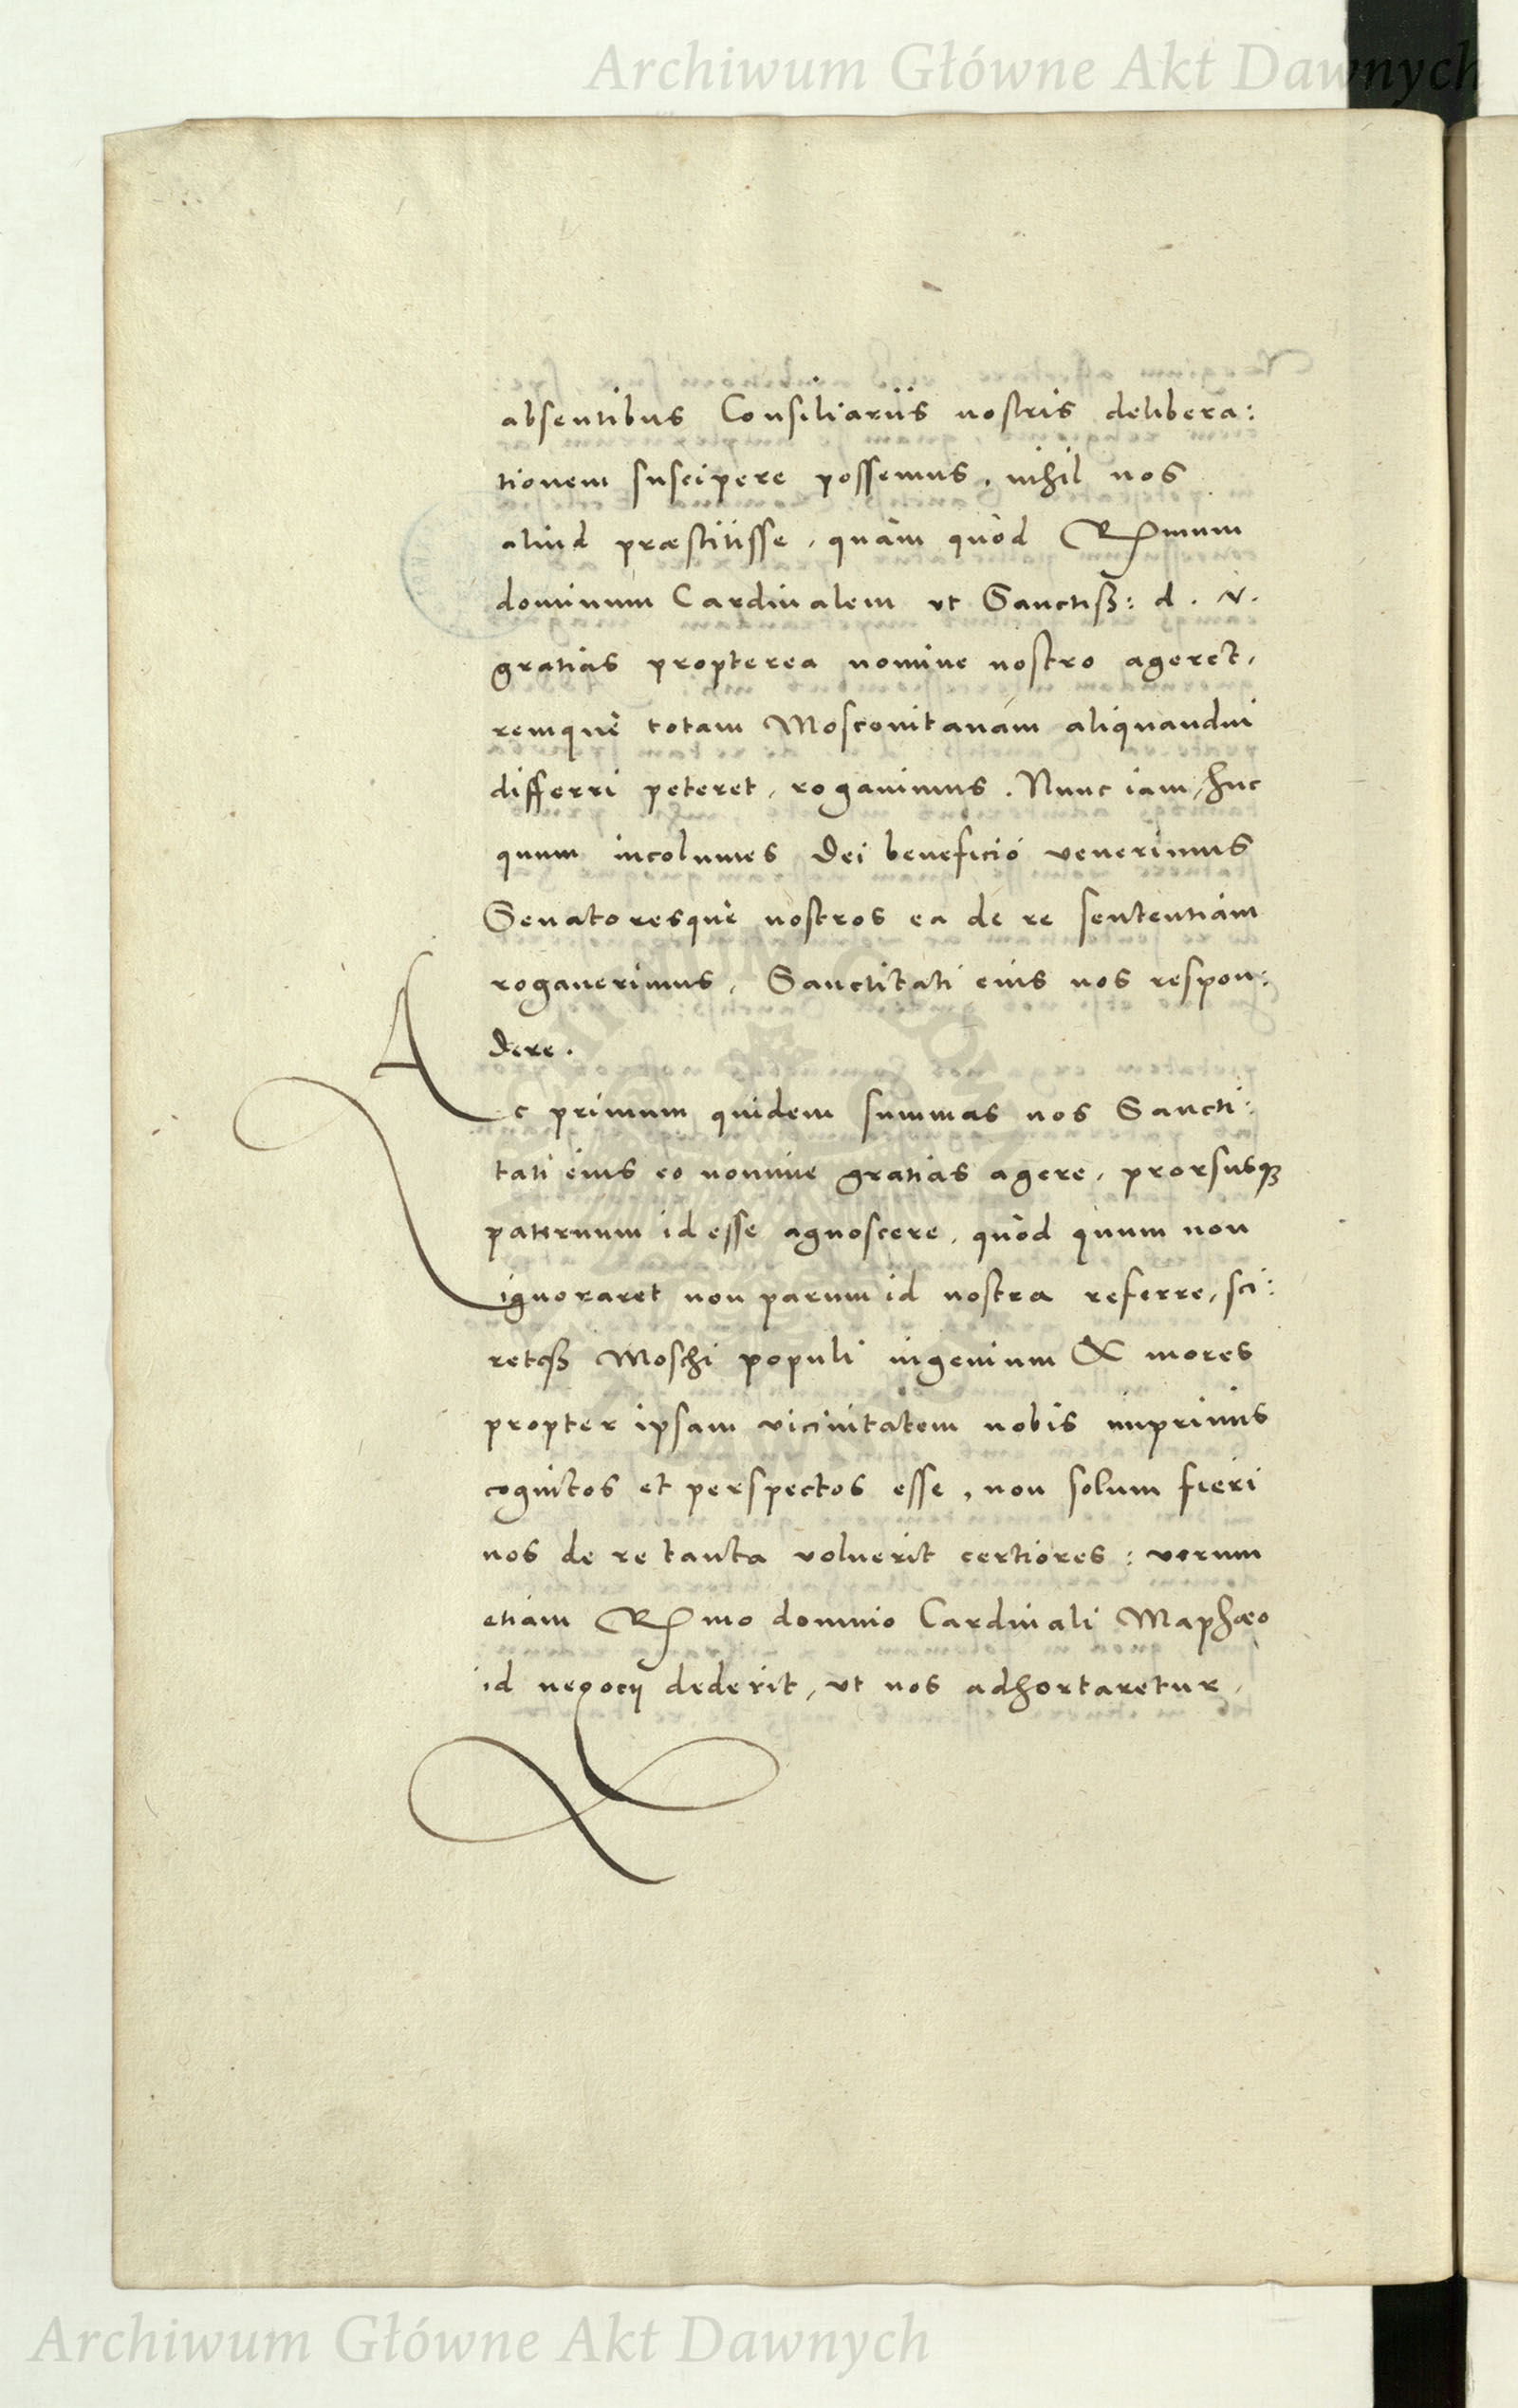 Archiwum Główne Akt Dawnych
absentibus Consiliariis nostris delibera:
tionem suscipere possemus, nihil nos
aliud præstitisse, quàm quòd R̃mum
dominum Cardinalem ut Sanctiss: d. n.
gratias propterea nomine nostro ageret,
remquè totam Moscovitanam aliquandui
differri peteret, rogavimus. Nunc iam, huc
quum incolumes Dei beneficio venerimus
Senatoresquè nostros ea de re sententiam
rogaverimus, Sanctitati eius nos respon:
dere.
Ac primum quidem summas nos Sancti:
tati eius eo nomine gratias agere, prorsusq3
paternum id esse agnoscere, quòd quum non
ignoraret non parum id nostra referre, sci:
retq3 Moschi populi ingenium & mores
propter ipsam vicinitatem nobis inprimis
cognitos et perspectos esse, non solum fieri
nos de re tanta voluerit certiores: verum
etiam R̃mo domino Cardinali Maphæo
id negocij dederit, ut nos adhortaretur,
Archiwum Główne Akt Dawnych